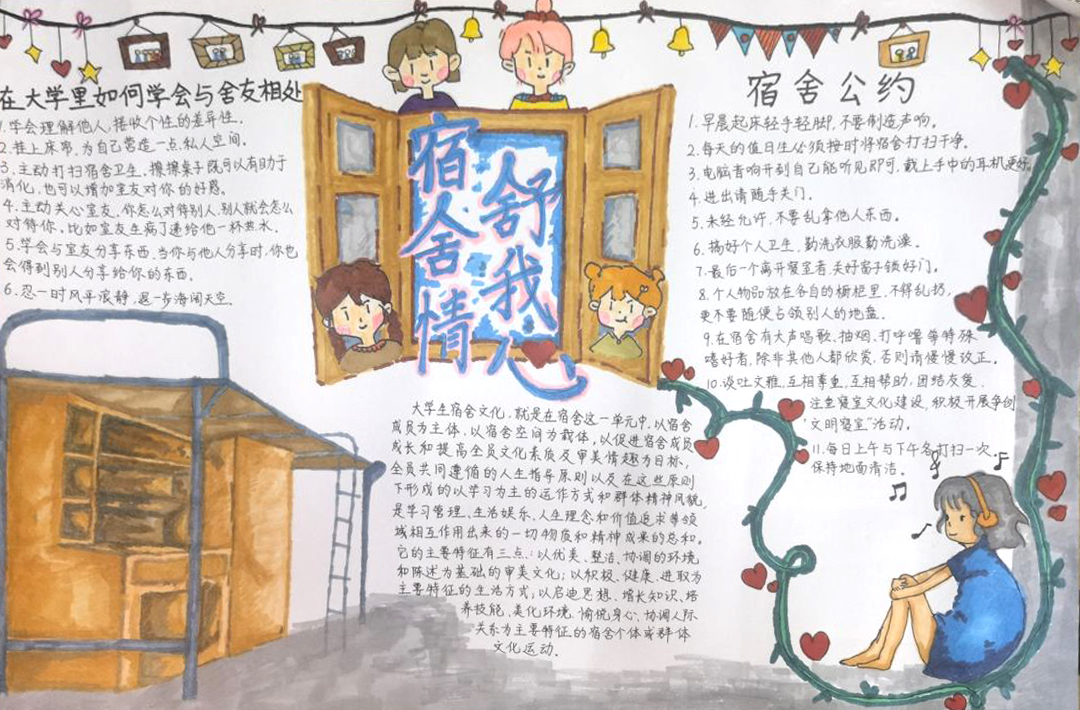 在大学里如何学会与舍友相处
1.学会理解他人,接收个性的差异性.
2.挂上床帘,为自己营造一点私人空间.
3.主动打扫宿舍卫生,擦擦桌子既可以有助于
消化,也可以增加室友对你的好感.
4.主动关心室友.你怎么对待别人,别人就会怎么
对待你.比如室友生病了递给他一杯热水.
5.学会与室友分享东西.当你与他人分享时.你也
会得到别人分享给你的东西.
6.忍一时风平浪静,退一步海阔天空.
宿舍情
舒我心
大学生宿舍文化,就是在宿舍这一单元中,以宿舍
成员为主体,以宿舍空间为载体,以促进宿舍成员
成长和提高全员文化素质及审美情趣为目标,
全员共同遵循的人生指导原则以及在这些原则
下形成的以学习为主的运作方式和群体精神风貌,
是学习管理、生活娱乐、人生理念和价值追求等领
域相互作用出来的一切物质和精神成果的总和。
它的主要特征有三点:以优美、整洁、协调的环境
和陈述为基础的审美文化;以积极、健康、进取为
主要特征的生活方式;以启迪思想、增长知识、培
养技能、美化环境、愉悦身心、协调人际
关系为主要特征的宿舍个体或群体
文化运动.
宿舍公约
1.早晨起床轻手轻脚,不要制造声响。
2.每天的值日生必须按时将宿舍打扫干净。
3.电脑音响开到自己能听见即可,戴上手中的耳机更好。
4.进出请随手关门。
5.未经允许,不要乱拿他人东西。
6.搞好个人卫生,勤洗衣服勤洗澡。
7.最后一个离开寝室者,关好窗子锁好门。
8.个人物品放在各自的橱柜里,不得乱扔,
更不要随便占领别人的地盘。
9.在宿舍有大声唱歌、抽烟、打呼噜等特殊
嗜好者,除非其他人都欣赏,否则请慢慢改正。
10.谈吐文雅,互相尊重,互相帮助,团结友爱.
注重寝室文化建设,积极开展争创
"文明寝室"活动。
11.每日上午与下午各打扫一次,
保持地面清洁。